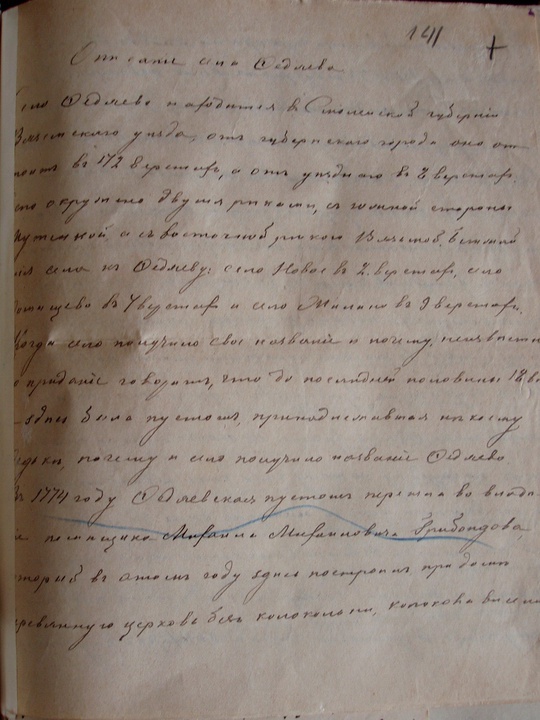 141
Описаніе села Ѳедяева
Село Ѳедяево находится въ Смоленской губерніи
Вяземскаго уѣзда, отъ губернскаго города оно от
въ 172 верстахъ, а отъ уѣзднаго въ 8 верстахъ.
окружено двумя рѣками, съ южной стороны
а съ восточной рѣкою Вязьмой.
села къ Ѳедяеву: село Новое въ 2 верстахъ, село
въ 7 верстахъ и село въ 9 верстахъ.
Когда село получило свое названіе и почему, неизвѣстно
преданіе говоритъ, что до последней половины 18 в
здѣсь была пустошь, принадлежавшая нѣкоему
почему и село получило названіе Ѳедяево.
Въ 1774 году Ѳедяевская пустошь перешла во владѣ
помѣщика Михаила Михайловича Грибоѣдова
который въ этомъ году здѣсь построилъ
деревянную церковь безъ колокольни, колокола висели